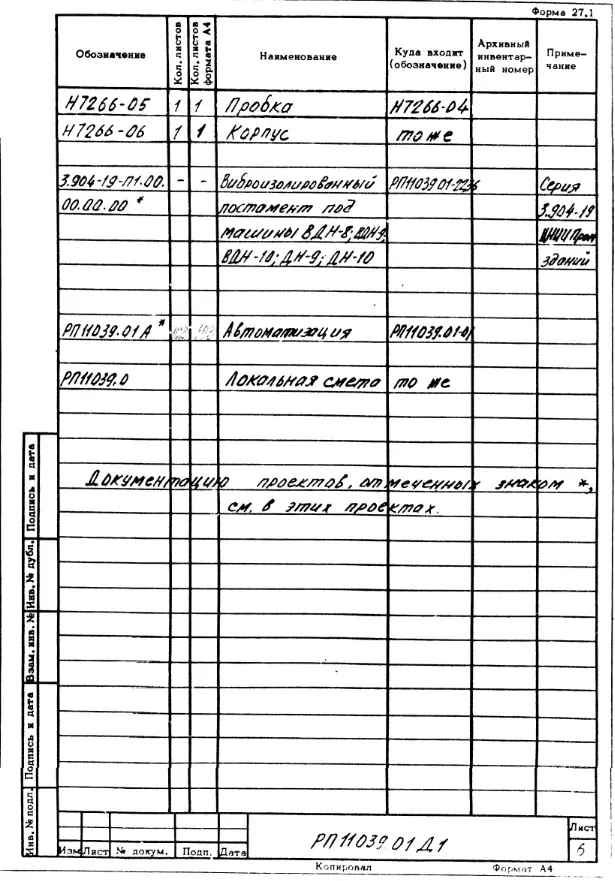 Форма 27.1
Обозначение Кол. листов Кол. листов формата А4 Наименование Куда входит (обозначение) Архивный инвентар- ный номер Приме- чание
Н7266-05 1 1 Пробка Н7266-04
Н7266-06 1 1 Корпус то же
3.904-19-П1.00. - - Виброизолированный РП11039.01-2236 Серия
00.00.00 * постамент под 3.904-19
машины ВДН-8; ВДН-9; ЦНИИПром
ВДН-10; ДН-9; ДН-10 зданий
РП11039.01А * Автоматизация РП11039.01-01
РП11039.0 Локальная смета то же
Документацию проектов, отмеченных знаком *,
см. в этих проектах.
Подпись и дата
Инв. № дубл.
Взам. инв. №
Подпись и дата
Инв. № подл.
Изм Лист № докум. Подп. Дата
РП11039.01Д1
Лист
6
Копировал Формат А4